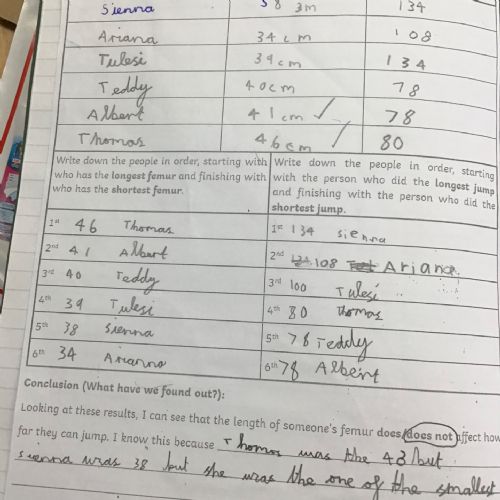 Sienna 38 3m 134
Ariana 34cm 108
Tulesi 39cm 134
Teddy 40cm 78
Albert 41cm 78
Thomas 46cm 80
Write down the people in order, starting with who has the longest femur and finishing with who has the shortest femur.
1st 46 Thomas
2nd 41 Albert
3rd 40 Teddy
4th 39 Tulesi
5th 38 Sienna
6th 34 Arianna
Write down the people in order, starting with the person who did the longest jump and finishing with the person who did the shortest jump.
1st 134 sienna
2nd 108 Ariana.
3rd 100 Tulesi
4th 80 Thomas
5th 78 Teddy
6th 78 Albert
Conclusion (What have we found out?):
Looking at these results, I can see that the length of someone's femur does/does not affect how
far they can jump. I know this because Thomas was the 43 but
sienna was 38 but she was the one of the smallest